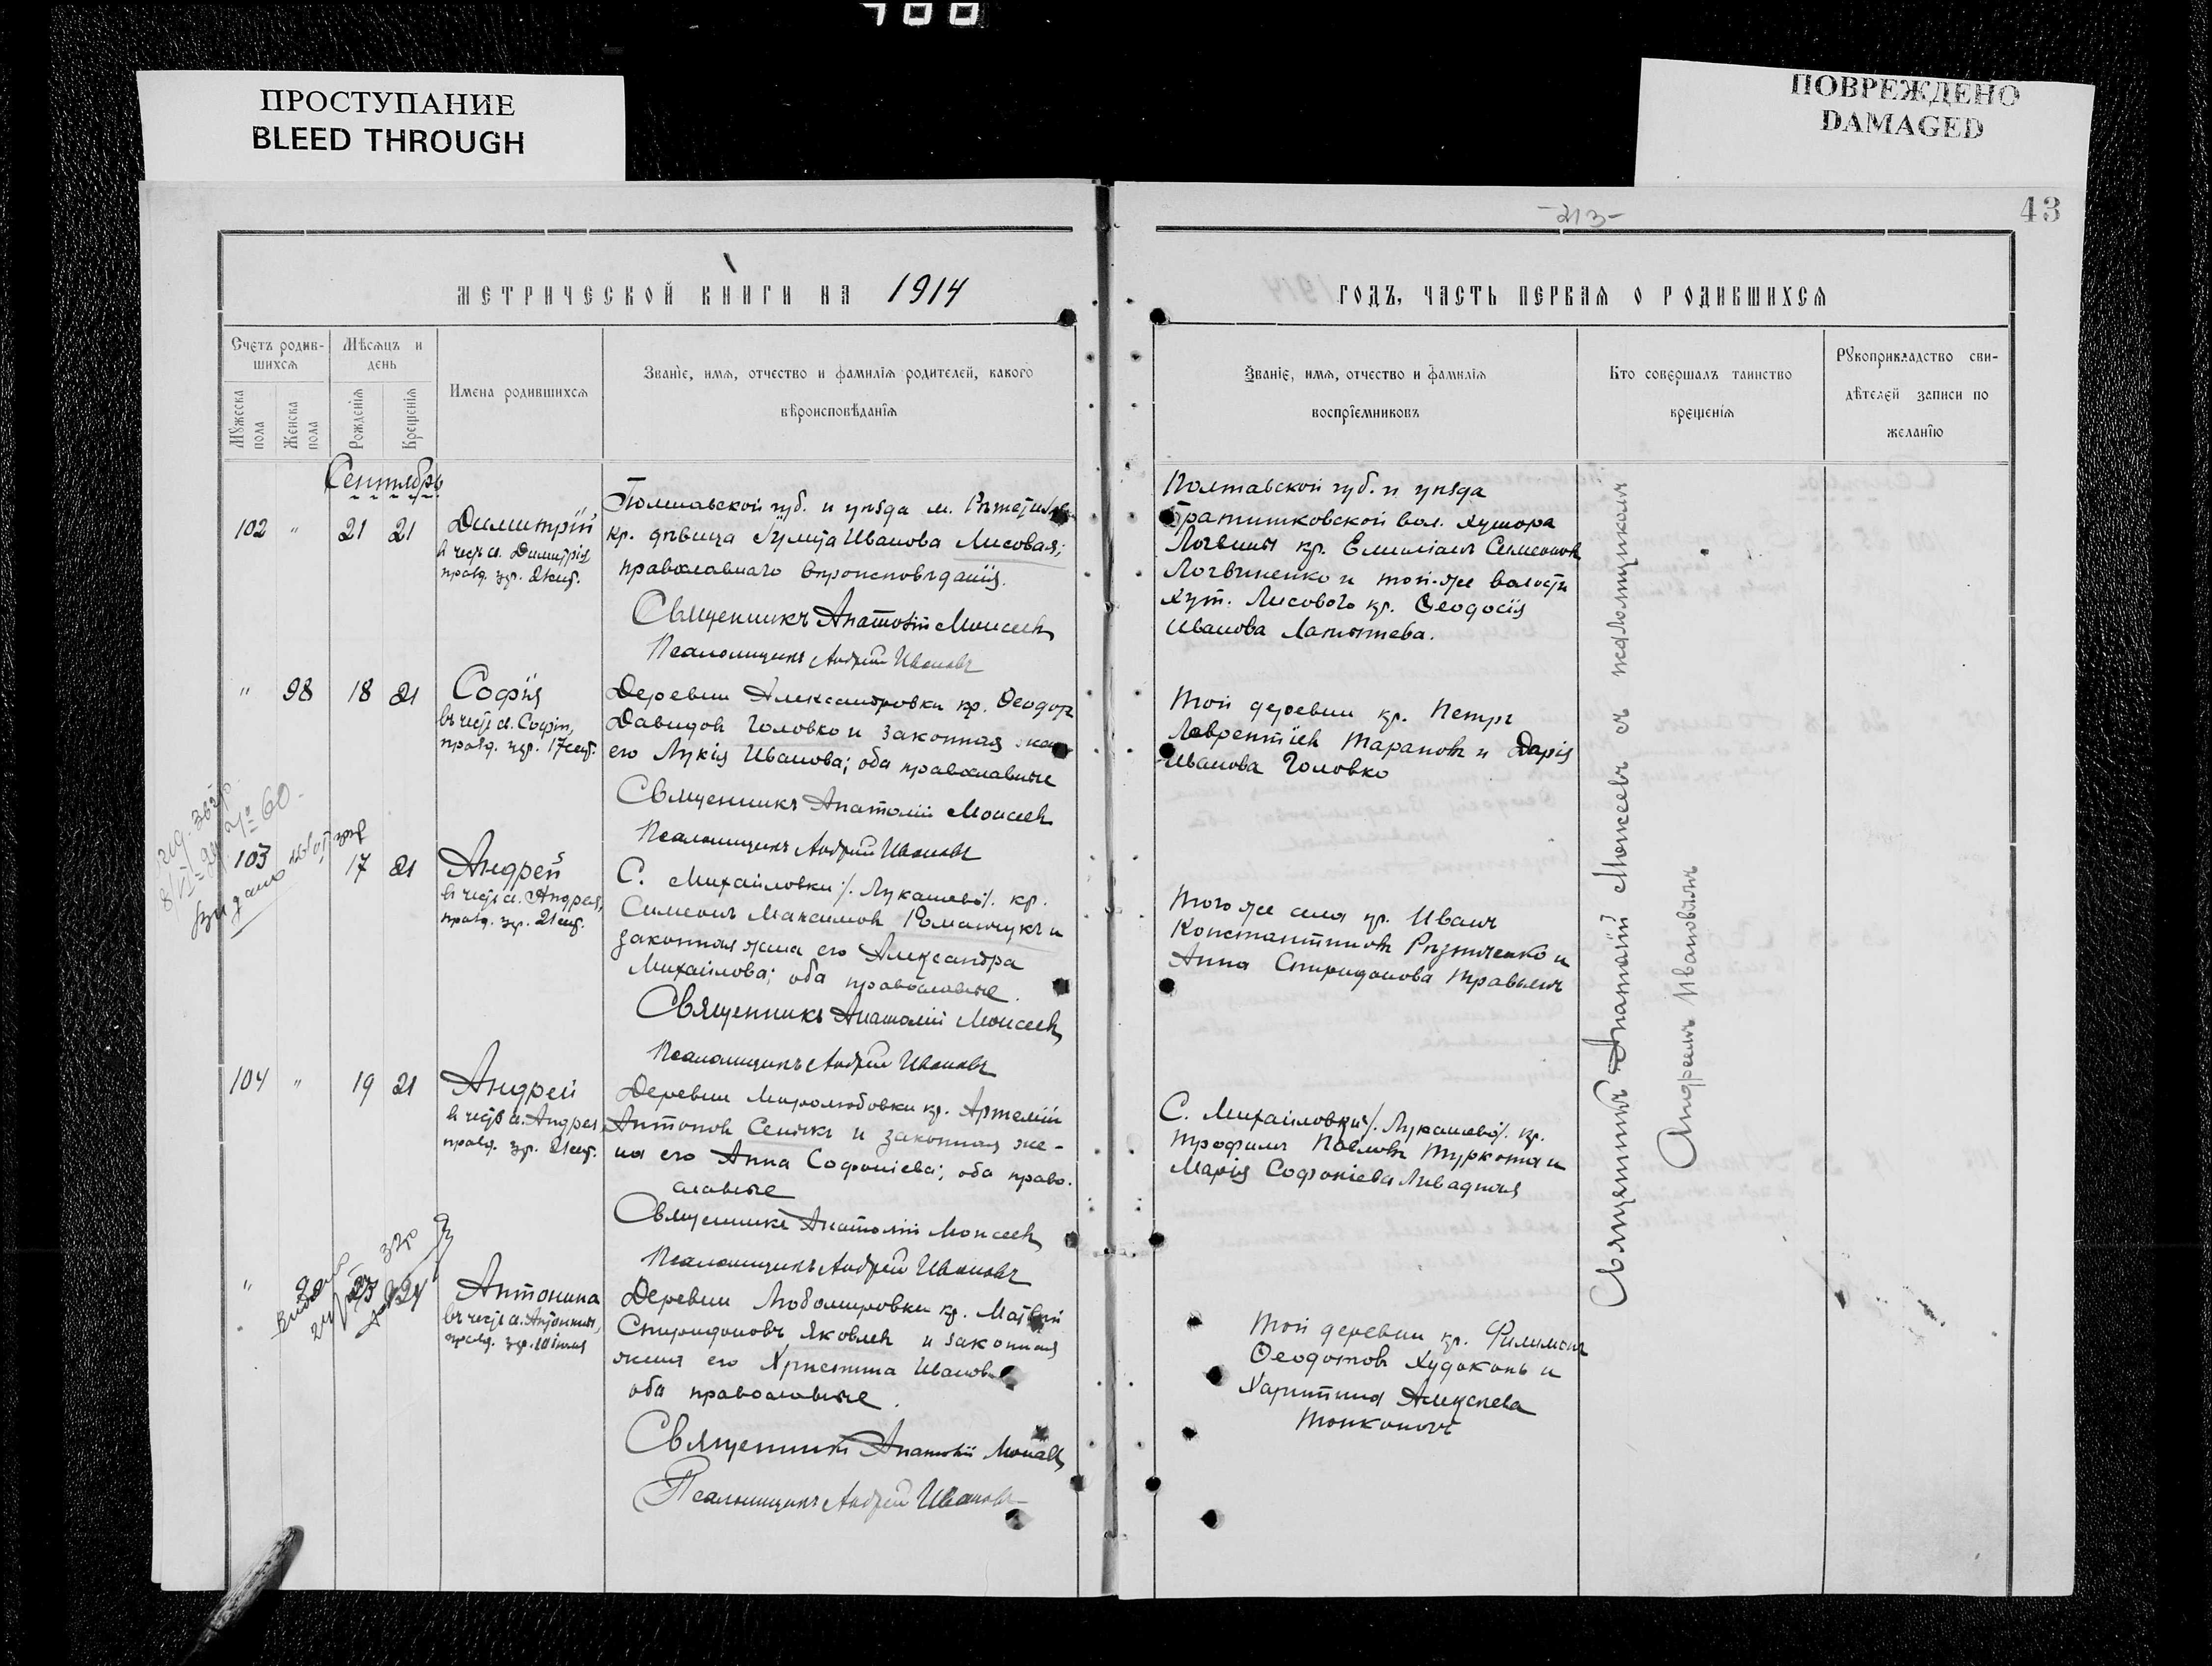 ПРОСТУПАНИЕ
BLEED THROUGH
ПОВРЕЖДЕНО
DAMAGED
-213-
43
МЕТРИЧЕСКОЙ КНИГИ НА 1914
ГОДЪ, ЧАСТЬ ПЕРВАЯ О РОДИВШИХСЯ
Счетъ родив-
шихся
Мѣсяцъ и
день
Мужеска
пола
Женска
пола
Рожденія
Крещенія
Имена родившихся
Званіе, имя, отчество и фамилія родителей, какого
вѣроисповѣданія
Званіе, имя, отчество и фамилія
воспріемниковъ
Кто совершалъ таинство
крещенія
Рукоприкладство сви-
дѣтелей записи по
желанію
Сентябрь
102 " 21 21
Димитрій
в честь св. Димитрія,
празд.
Полтавской губ. и уѣзда м.
кр. дѣвица Іулита Иванова Лисовая;
православнаго вѣроисповѣданія.
Священникъ Анатолій Моисеев
Псаломщикъ Андрей Ивановъ
Полтавской губ. и уѣзда
вол. хутора
кр. Емиліанъ Симеонов
Логвиненко и той-же волости
хут. Лисового кр. Ѳеодосія
Иванова
" 98 18 21
Софія
въ честь св. Софіи,
празд. 17 сент.
Деревни Александровки кр. Ѳеодор
Давидов Головко и законная жена
его Лукія Иванова; оба православные
Священникъ Анатолій Моисеев
Псаломщикъ Андрей Ивановъ
Той деревни кр. Петръ
Лаврентіев Таранов и Дарія
Иванова Головко
№ 60
103 17 21
Андрей
в честь св. Андрея,
празд.
С. Михайловки /. Лукашево /. кр.
Симеонъ Максимов Романчукъ и
законная жена его Александра
Михайлова; оба православные.
Священникъ Анатолій Моисеев
Псаломщикъ Андрей Ивановъ
Того же села кр. Иванъ
Константинов Рѣзниченко и
Анна Спиридонова
104 " 19 21
Андрей
в честь св. Андрея,
празд.
Деревни Миролюбовки кр. Артемій
Антонов и законная же-
на его Анна Софоніева; оба право-
славные
Священникъ Анатолій Моисеев
Псаломщикъ Андрей Ивановъ
С. Михайловки /. Лукашево /. кр.
Трофимъ Павлов Туркота и
Марія Софоніева Ливадная
" 23 24
Антонина
въ честь св. Антонины,
празд.
Деревни Любомировки кр. Матвѣй
Спиридоновъ Яковлев и законная
жена его Христина Иванова
оба православные.
Священникъ Анатолій Моисеев
Псаломщикъ Андрей Ивановъ
Той деревни кр. Филимонъ
Ѳеодотов Худоконь и
Харитина Алексѣева
Священникъ Анатолій Моисеевъ съ псаломщикомъ
Андреемъ Ивановымъ